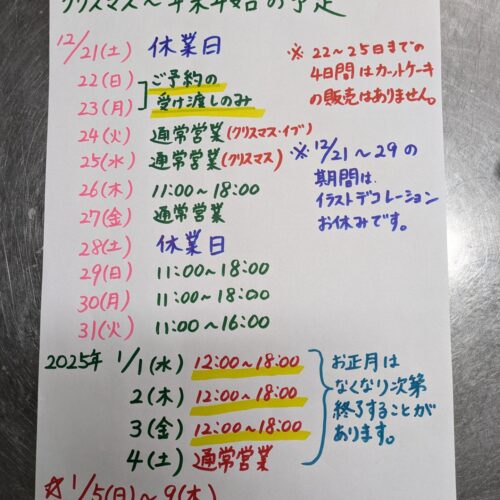 クリスマス～年末年始の予定
12/21(土) 休業日
22(日) ご予約の
23(月) 受け渡しのみ
24(火) 通常営業(クリスマス・イブ)
25(水) 通常営業(クリスマス)
26(木) 11:00～18:00
27(金) 通常営業
28(土) 休業日
29(日) 11:00～18:00
30(月) 11:00～18:00
31(火) 11:00～16:00
※22～25日までの
4日間はカットケーキ
の販売はありません。
※12/21～29の
期間は、
イラストデコレーション
お休みです。
2025年 1/1(水) 12:00～18:00
2(木) 12:00～18:00
3(金) 12:00～18:00
4(土) 通常営業
お正月は
なくなり次第
終了することが
あります。
☆1/5(日)～9(木)